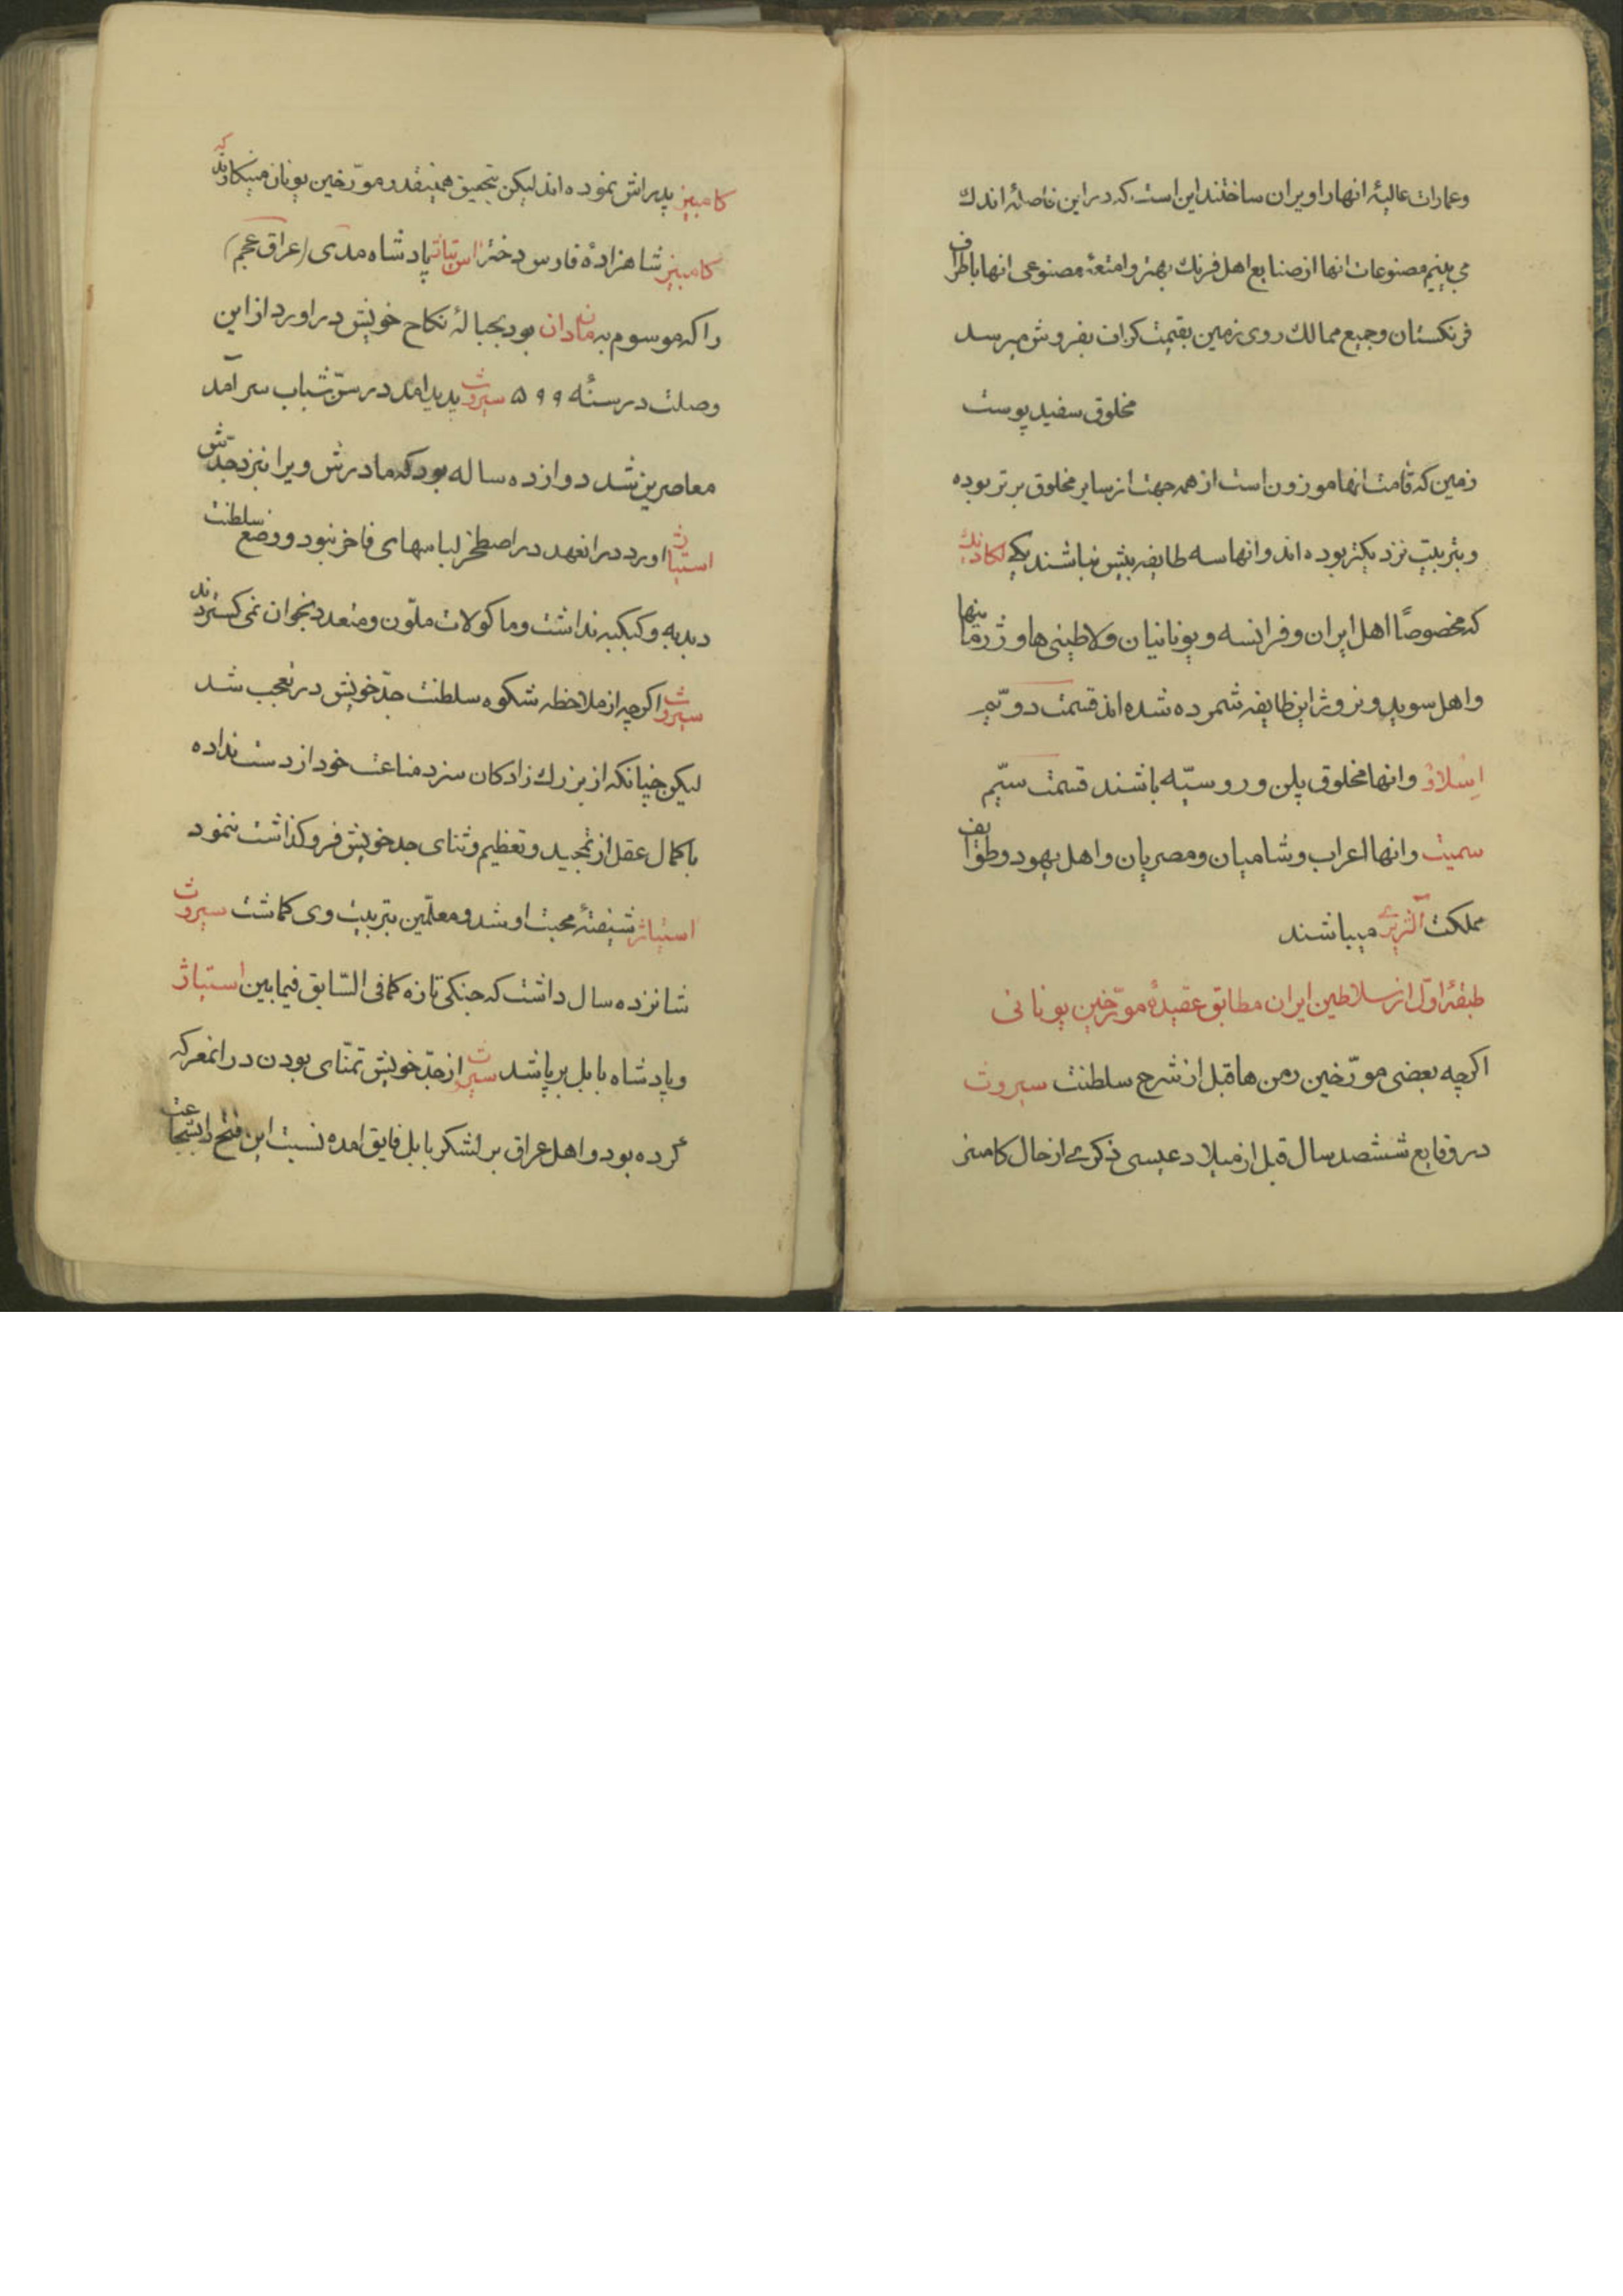 وعمارات عالیهٔ انها را ویران ساختند این است که در این فاصلهٔ اندك
می بینیم مصنوعات انها از صنایع اهل فرنك بهتر و امتعهٔ مصنوعی انها باطراف
فرنکستان وجمیع ممالك روی زمین بقیمت کران بفروش میرسد
مخلوق سفید پوست
زمین که قامت انها موزون است از همه جهت از سایر مخلوق برتر بوده
و بتربیت نزدیکتر بوده اند و انها سه طایفه بیش نباشند یکی
که مخصوصًا اهل ایران و فرانسه و یونانیان ولاطینی ها و ژرمانیها
واهل سوید و نروژ از این طایفه شمرده شده اند قسمت دویّم
اِسْلاوْ وانها مخلوق پلن و روسیّه باشند قسمت سیّم
سمیت وانها اعراب و شامیان ومصریان واهل یهود وطوایف
مملکت الژیری میباشند
طبقهٔ اوّل از سلاطین ایران مطابق عقیدهٔ مورّخین یونانی
اکرچه بعضی مورّخین رمن ها قبل از شرح سلطنت سیروث
در وقایع ششصد سال قبل از میلاد عیسی ذکرمی از حال کامبیز
کامبیز پدراش نموده اند لیکن بتحقیق همینقدر مورّخین یونان مینکارند که
کامبیز شاهزادهٔ فارس دختر استیاث پادشاه مدی (عراق عجم)
را که موسوم به ماندان بود بحبالهٔ نکاح خویش در اورد از این
وصلت در سنهٔ ۵۹۹ سیروث پدید امد در سنّ شباب سر آمد
معاصرین شد دوازده ساله بود که مادرش ویرا نیز نزد جدّش
استیاث اورد در انعهد در اصطخر لباسهای فاخر نبود و وضع سلطنت
دبدبه و کبکبه نداشت وماکولات ملوّن ومتعدد بخوان نمی کستردند
سیروث اکرچه از ملاحظه شکوه سلطنت جدّ خویش در تعجب شد
لیکن چنانکه از بزرك زادکان سزد مناعت خود از دست نداده
با کمال عقل از تمجید و تعظیم و ثنای جد خویش فروکذاشت ننمود
استیاژ شیفتهٔ محبت او شد و معلّمین بتربیت وی کماشت سیروث
شانزده سال داشت که جنکی تازه کمافی السّابق فیمابین استیاژ
وپادشاه بابل برپا شد سیروث از جدّ خویش تمنّای بودن در انمعرکه
کرده بود و اهل عراق بر لشکر بابل فایق امده نسبت این فتح را بشجاعت